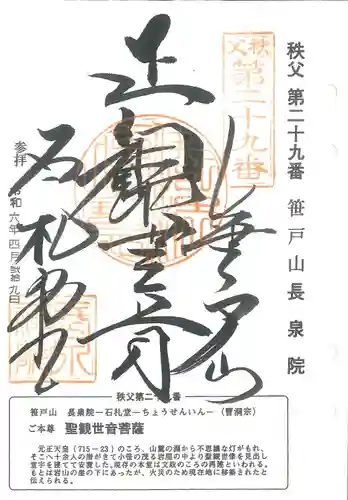 秩父 第二十九番 笹戸山長泉院
秩父
第二十九番
正觀世音
石札堂
参拝 令和六年四月弐拾九日
秩父第二十九番
笹戸山 長泉院ー石札堂ーちょうせんいんー(曹洞宗)
ご本尊 聖観世音菩薩
元正天皇(715-23)のころ、山麓の淵から不思議な灯がもれ、
そこへ十余人の僧がきて小笹の茂る岩屋の中より聖観世像を見出し
堂宇を建てて安置した。現存の本堂は文政のころの再建といわれる。
もとは岩山の崖の下にあったが、火災のため現在地に移築されたと
伝えられる。